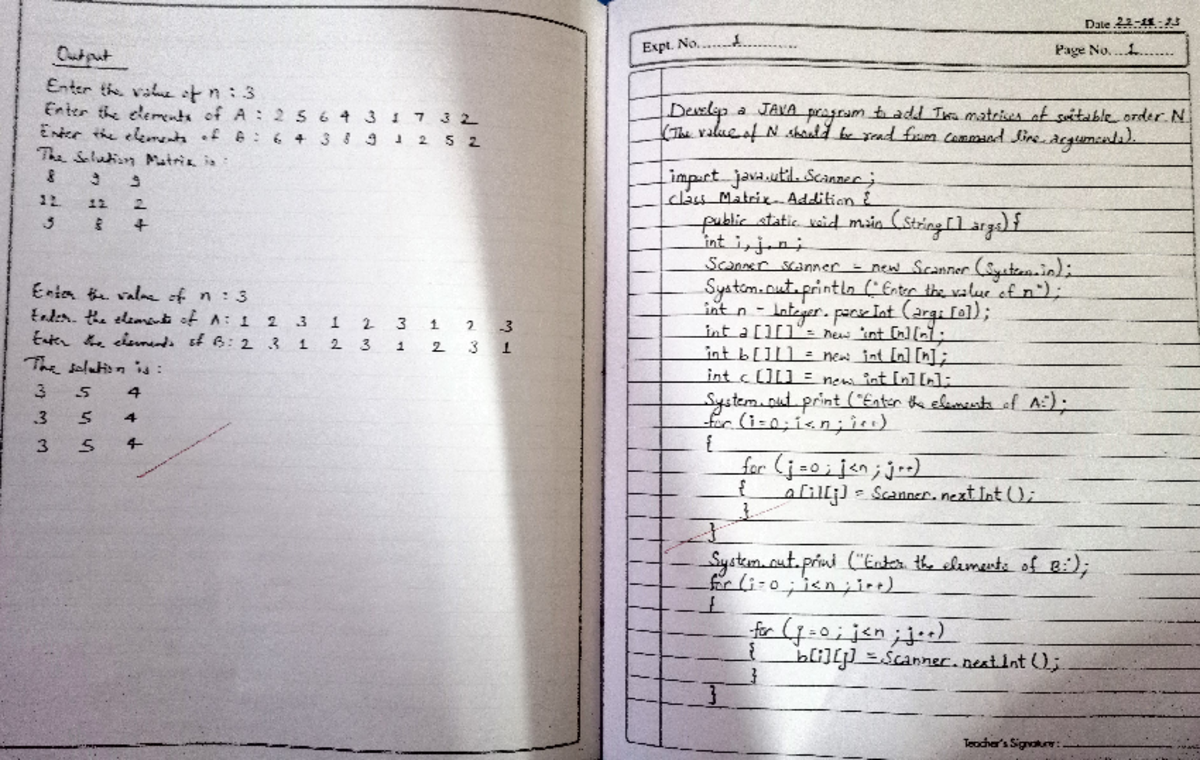 Output
Enter the value of n : 3
Enter the elements of A : 2 5 6 4 3 1 7 3 2
Enter the elements of B : 6 4 3 8 9 1 2 5 2
The Solution Matrix is :
8 9 9
12 12 2
9 8 4
Enter the value of n : 3
Enter the elements of A : 1 2 3 1 2 3 1 2 3
Enter the elements of B : 2 3 1 2 3 1 2 3 1
The solution is :
3 5 4
3 5 4
3 5 4
Date
Expt. No. 1
Page No. 1
Develop a JAVA program to add Two matrices of suitable order N
(The value of N should be read from command line arguments).
import java.util.Scanner;
class Matrix Addition {
public static void main (String [] args) {
int i, j, n ;
Scanner scanner = new Scanner (System.in);
System.out.println ("Enter the value of n");
int n = Integer.parseInt (args [0]);
int a [][] = new int [n][n];
int b [][] = new int [n][n];
int c [][] = new int [n][n];
System.out print ("Enter the elements of A:");
for (i=0; i<n ; i++)
{
for (j=0; j<n ; j++)
{ a[i][j] = Scanner.nextInt ();
}
}
System.out.print ("Enter the elements of B:");
for (i=0 ; i<n ; i++)
{
for (j=0 ; j<n ; j++)
{ b[i][j] = Scanner.nextInt ();
}
}
Teacher's Signature :